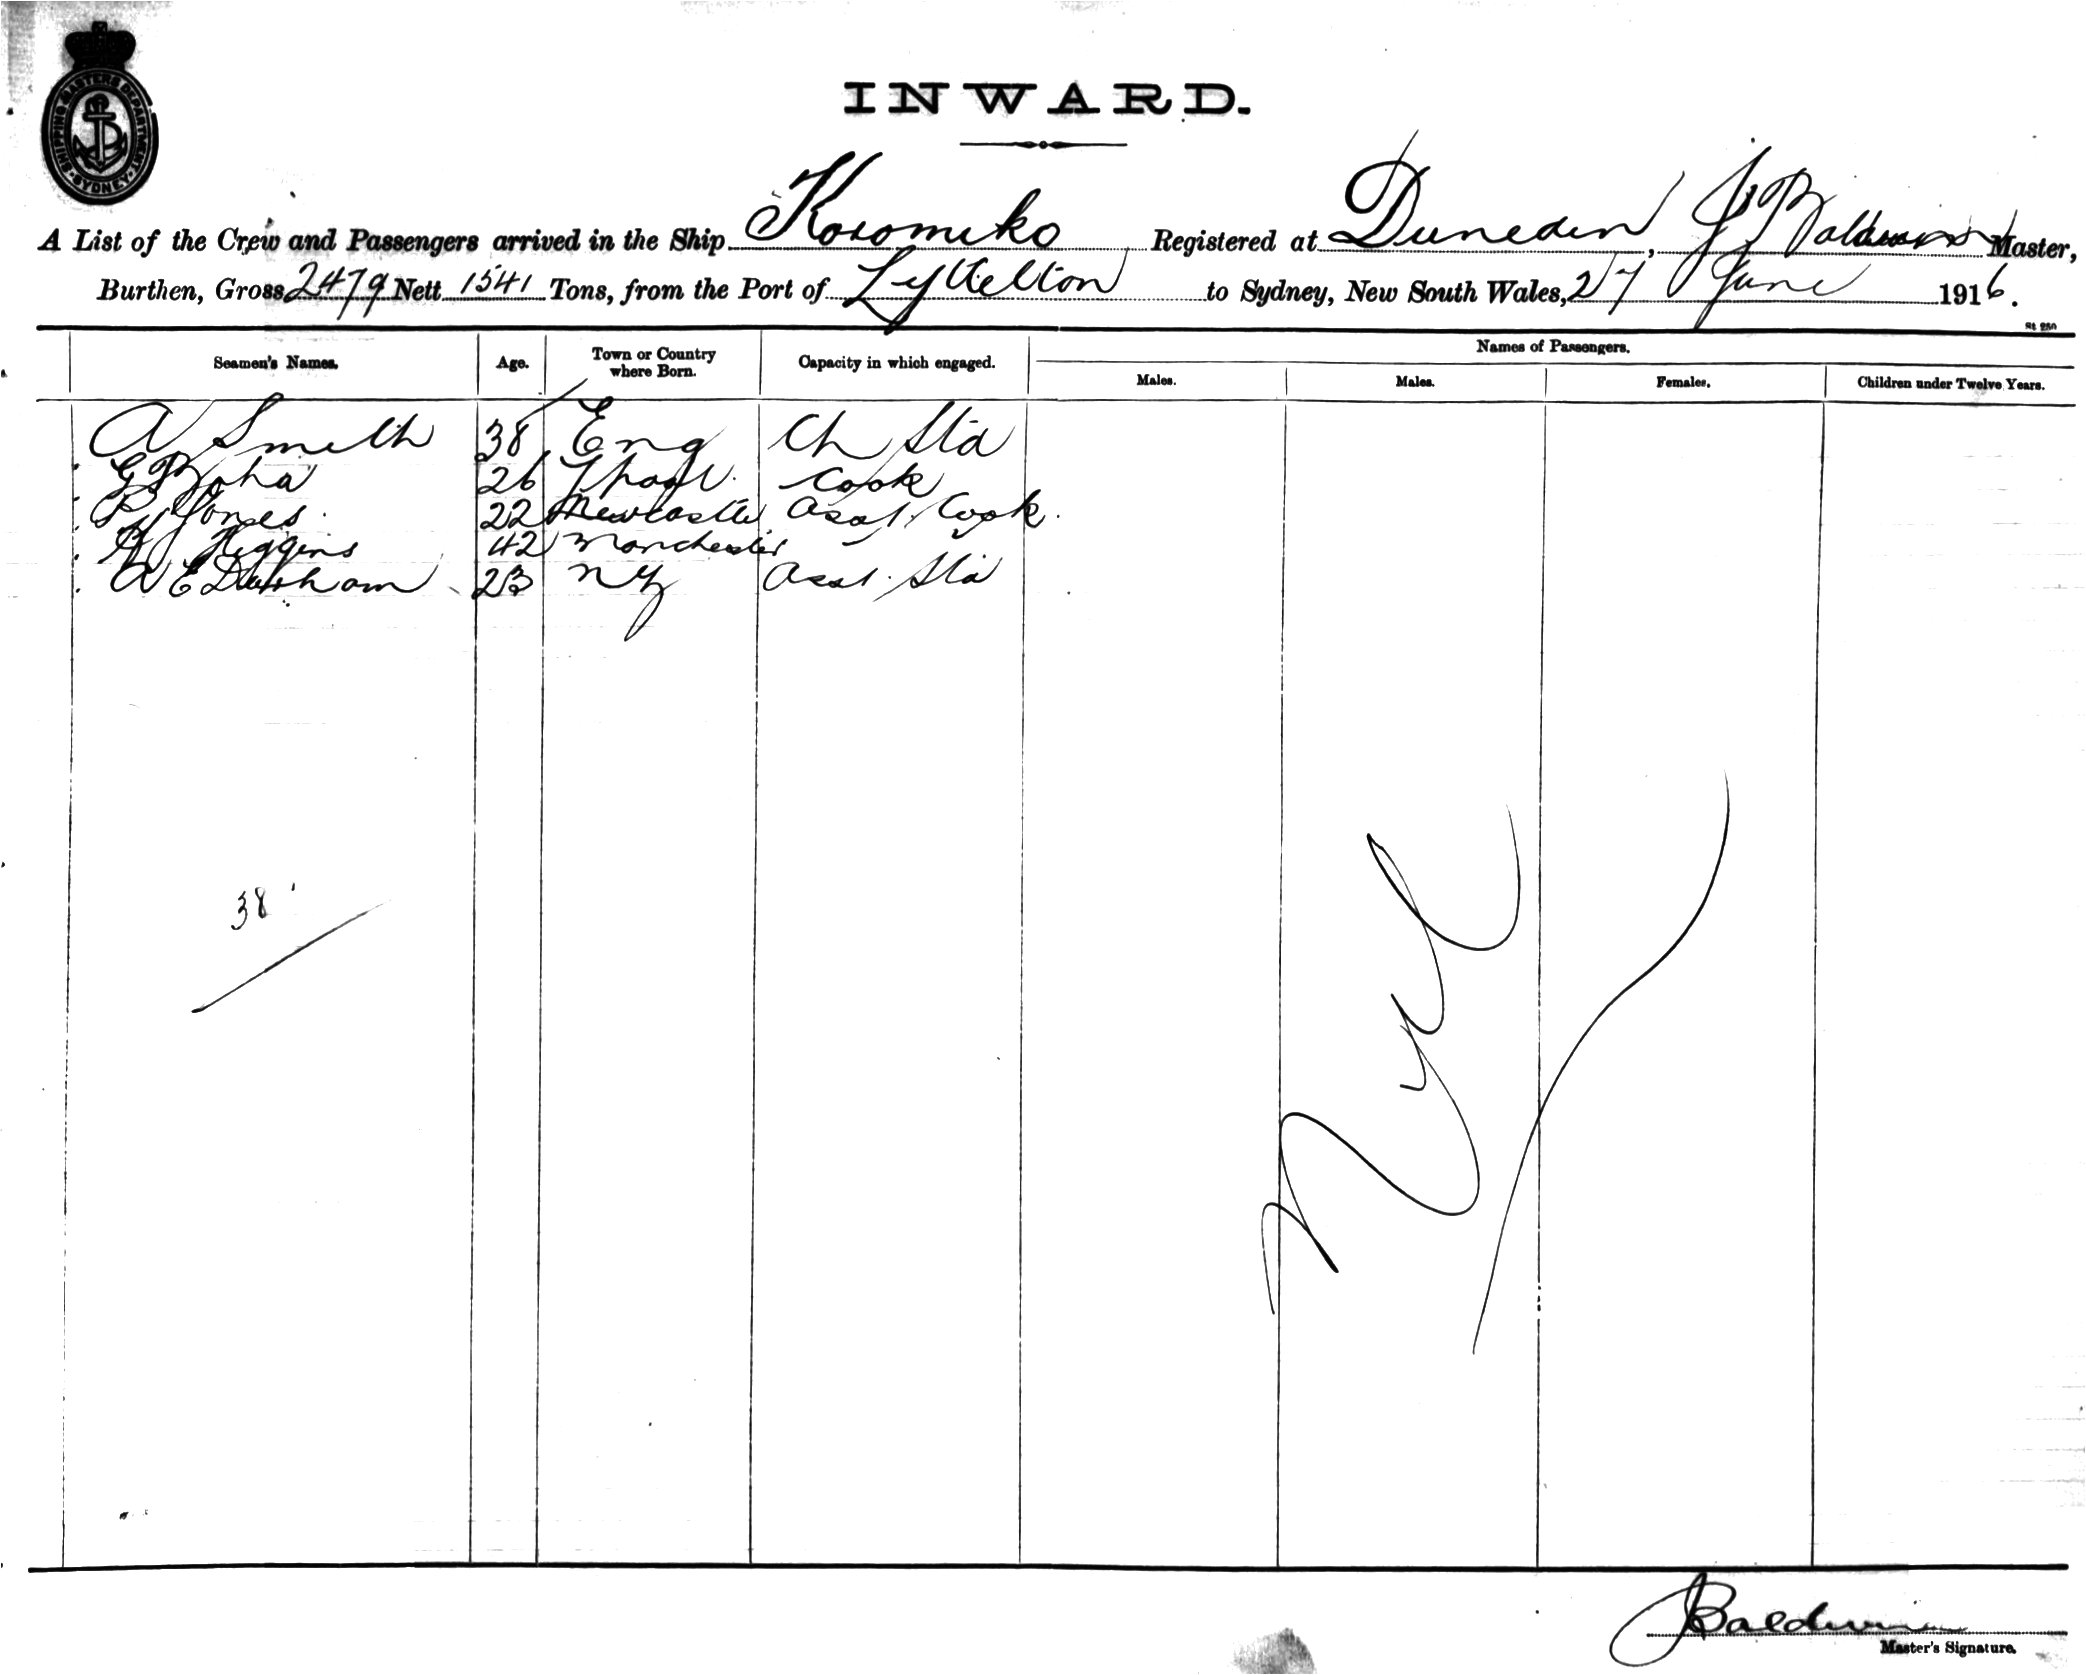 SHIPPING MASTERS DEPARTMENT SYDNEY
INWARD.
A List of the Crew and Passengers arrived in the Ship Koromiko Registered at Dunedin, J Baldwin Master,
Burthen, Gross 2479 Nett 1541 Tons, from the Port of Lyttelton to Sydney, New South Wales, 27 June 1916.
St 250
Seamen's Names. Age. Town or Country where Born. Capacity in which engaged. Names of Passengers.
Males. Males. Females. Children under Twelve Years.
A Smith 38 Eng Ch Std
G 26 L'pool Cook
P Jones 22 Newcastle Asst. Cook
H Higgins 42 Manchester " "
A E Durham 23 NZ Asst. Std
38
Nil
J Baldwin
Master's Signature.